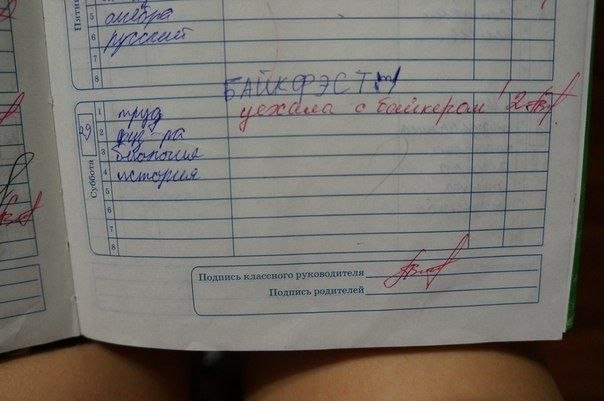 Пятни
5 алгебра
6 русский
7
8
БАЙКФЭСТ
Суббота 29
1 труд
уехала с байкером! 2
2 физ-ра
3 биология
4 история
5
6
7
8
Подпись классного руководителя
Подпись родителей